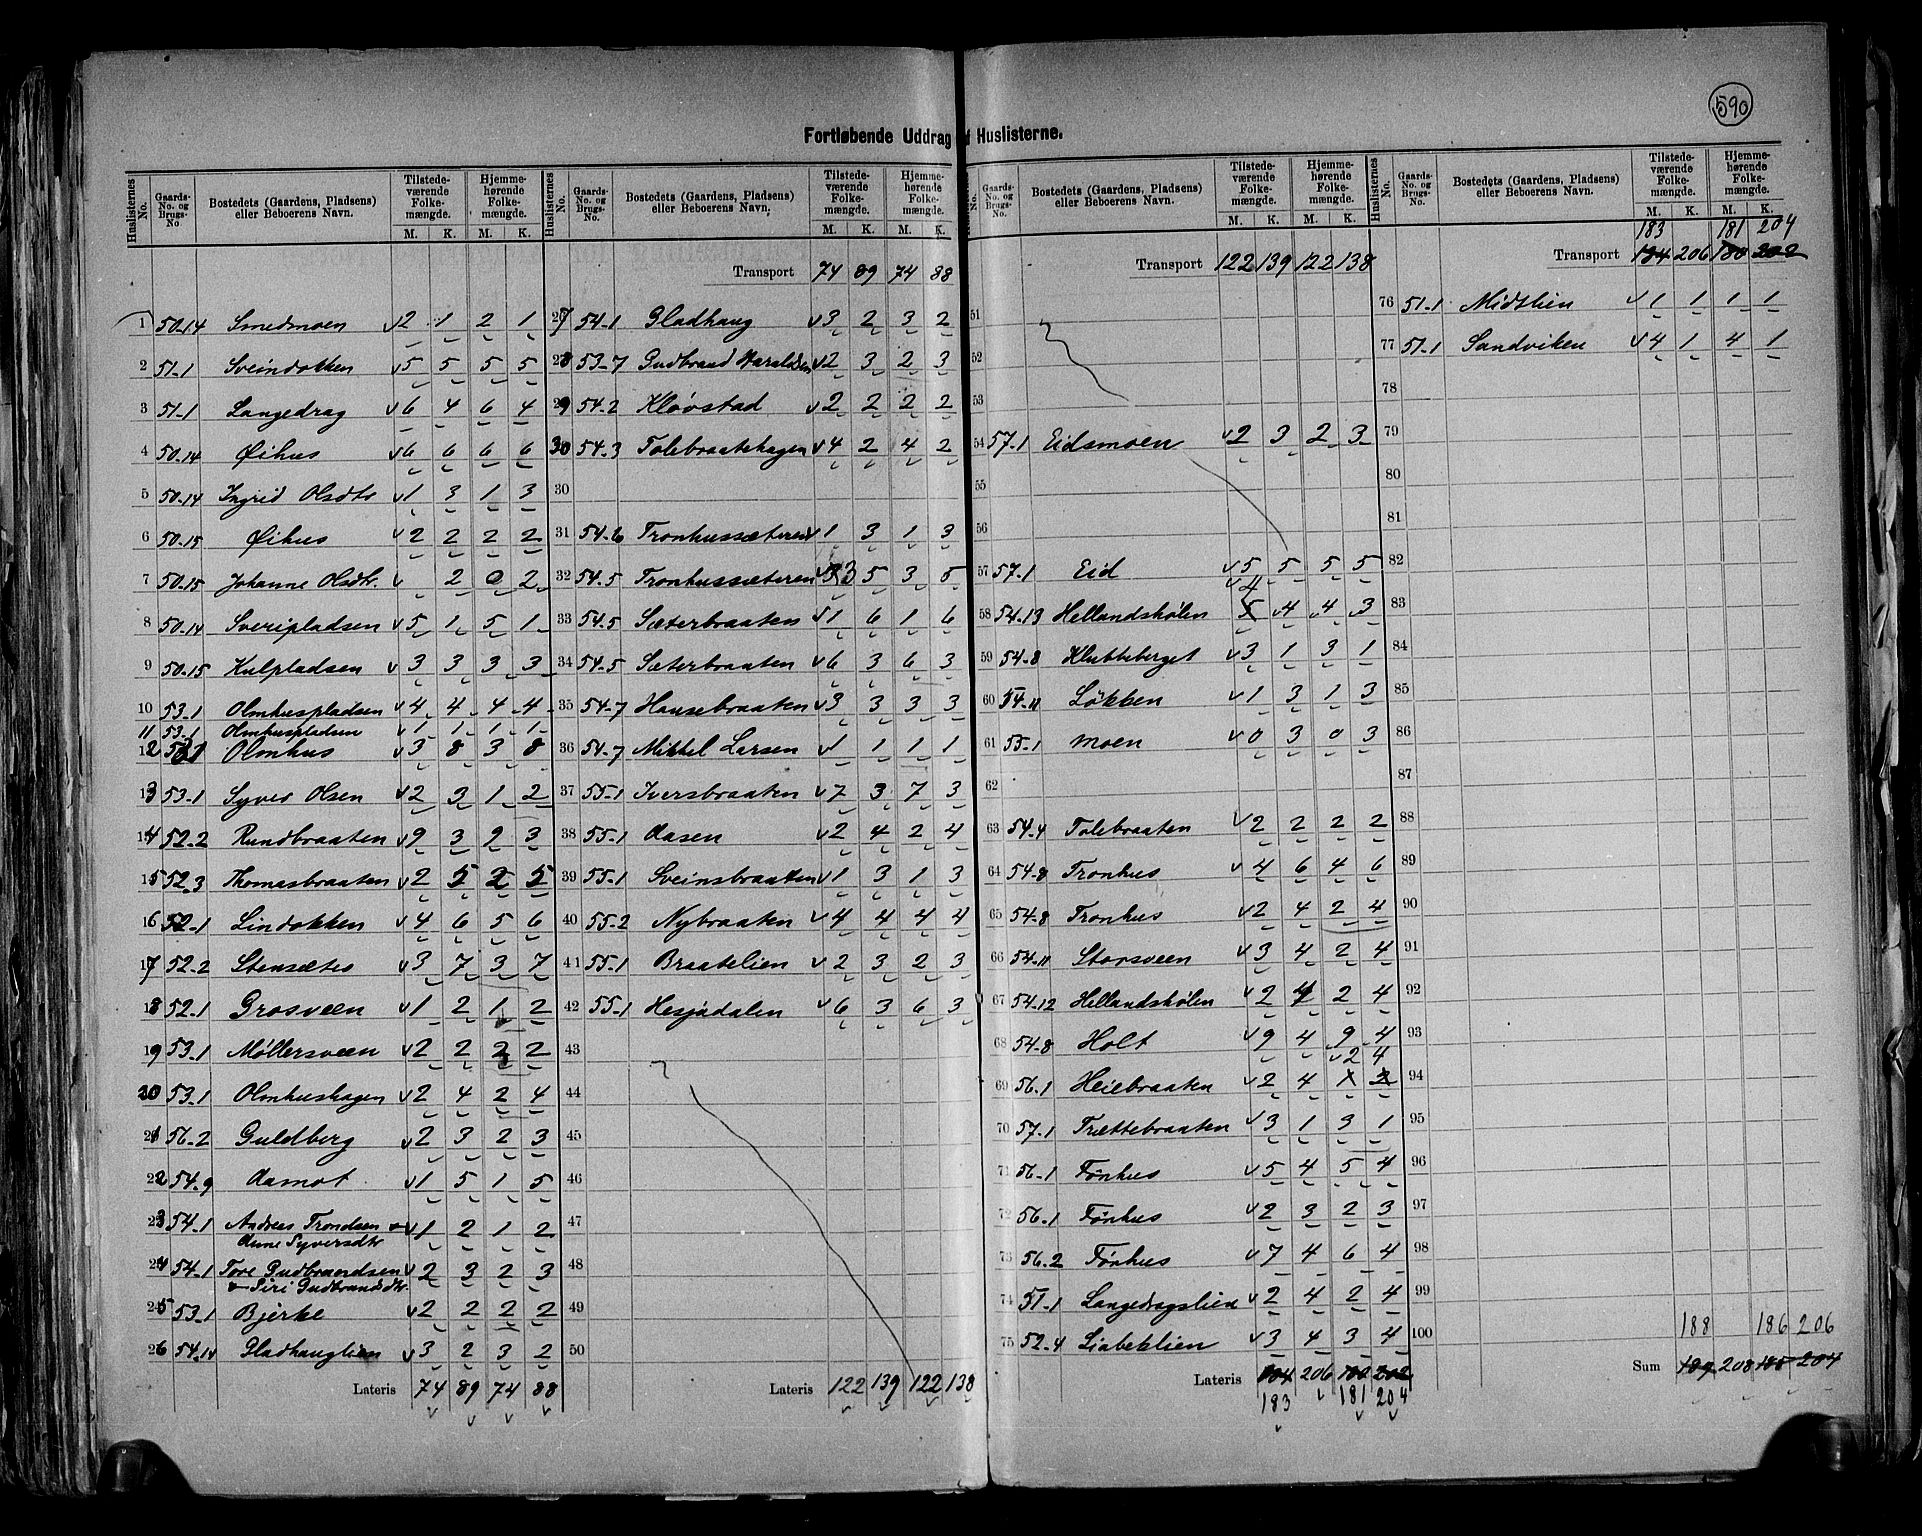 590
Fortløbende Uddrag f Huslisterne.
Huslisternes No. Gaards-No. og Brugs-No. Bostedets (Gaardens, Pladsens) eller Beboerens Navn. Tilstede-værende Folke-mængde. Hjemme-hørende Folke-mængde.
M. K. M. K.
1 50-14 Smedmoen 2 1 2 1
2 51-1 Sveindokken 5 5 5 5
3 51-1 Langedrag 6 4 6 4
4 50-14 Øihus 6 6 6 6
5 50-14 Ingrid Olsdtr 1 3 1 3
6 50-15 Øihus 2 2 2 2
7 50-15 Johanne Olsdtr. 2 0 2
8 50-14 Sveripladsen 5 1 5 1
9 50-15 Kulpladsen 3 3 3 3
10 53-1 Olmhuspladsen 4 4 4 4
11 53-1 Olmhuspladsen 1 1 1 1
12 53-1 Olmhus 3 8 3 8
13 53-1 Syver Olsen 2 3 1 2
14 52-2 Rundbraaten 9 3 9 3
15 52-3 Thomasbraaten 2 5 2 5
16 52-1 Lindokken 4 6 5 6
17 52-2 Stensæter 3 7 3 7
18 52-1 Grosveen 1 2 1 2
19 53-1 Møllersveen 2 2 2 2
20 53-1 Olmhushagen 2 4 2 4
21 56-2 Guldberg 2 3 2 3
22 54-9 Aamot 1 5 1 5
23 54-1 Andreas Trondsen &
Anne Syversdtr 1 2 1 2
24 54-1 Tore Gudbrandsen
& Siri Gudbrandsdtr. 2 3 2 3
25 53-1 Bjerke 2 2 2 2
26 54-14 Gladhauglien 3 2 3 2
Lateris 74 89 74 88
Huslisternes No. Gaards-No. og Brugs-No. Bostedets (Gaardens, Pladsens) eller Beboerens Navn. Tilstede-værende Folke-mængde. Hjemme-hørende Folke-mængde.
M. K. M. K.
Transport 74 89 74 88
27 54-1 Gladhaug 3 2 3 2
28 53-7 Gudbrand Haraldsen 2 3 2 3
29 54-2 Kløvstad 2 2 2 2
30 54-3 Tolebraatehagen 4 2 4 2
30
31 54-6 Tronhussæteren 1 3 1 3
32 54-5 Tronhussæteren 3 5 3 5
33 54-5 Sæterbraaten 1 6 1 6
34 54-5 Sæterbraaten 6 3 6 3
35 54-7 Hansebraaten 3 3 3 3
36 54-7 Mikkel Larsen 1 1 1 1
37 55-1 Iversbraaten 7 3 7 3
38 55-1 Aasen 2 4 2 4
39 55-1 Sveinsbraaten 1 3 1 3
40 55-2 Nybraaten 4 4 4 4
41 55-1 Braatelien 2 3 2 3
42 55-1 Hesjødalen 6 3 6 3
43
44
45
46
47
48
49
50
Lateris 122 139 122 138
No. Gaards-No. og Brugs-No. Bostedets (Gaardens, Pladsens) eller Beboerens Navn. Tilstede-værende Folke-mængde. Hjemme-hørende Folke-mængde.
M. K. M. K.
Transport 122 139 122 138
51
52
53
54 57-1 Eidsmoen 2 3 2 3
55
56
57 57-1 Eid 5 5 5 5
4
58 54-13 Hellandshølen 5 4 4 3
59 54-8 Klutteberget 3 1 3 1
60 54-11 Løkken 1 3 1 3
61 55-1 Moen 0 3 0 3
62
63 54-4 Tolebraaten 2 2 2 2
64 54-8 Tronhus 4 6 4 6
65 54-8 Tronhus 2 4 2 4
66 54-11 Storsveen 3 4 2 4
67 54-12 Hellandshølen 2 4 2 4
68 54-8 Holt 9 4 9 4
2 4
69 56-1 Heiebraaten 2 4 1 3
70 57-1 Trættebraaten 3 1 3 1
71 56-1 Fønhus 5 4 5 4
72 56-1 Fønhus 2 3 2 3
73 56-2 Fønhus 7 4 6 4
74 51-1 Langedragslien 2 4 2 4
75 52-4 Liabeklien 3 4 3 4
Lateris 184 206 180 202
183 181 204
Huslisternes No. Gaards-No. og Brugs-No. Bostedets (Gaardens, Pladsens) eller Beboerens Navn. Tilstede-værende Folke-mængde. Hjemme-hørende Folke-mængde.
M. K. M. K.
183 181 204
Transport 184 206 180 202
76 51-1 Midtlien 1 1 1 1
77 51-1 Sandviken 4 1 4 1
78
79
80
81
82
83
84
85
86
87
88
89
90
91
92
93
94
95
96
97
98
99
100
188 186 206
Sum 189 208 185 204